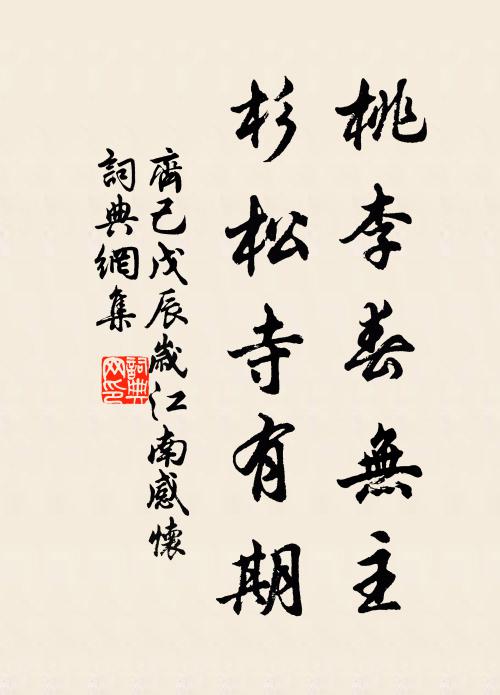 桃李春無主
杉松寺有期
齊己戊辰歲江南感懷
詞典網集
詞典
网印